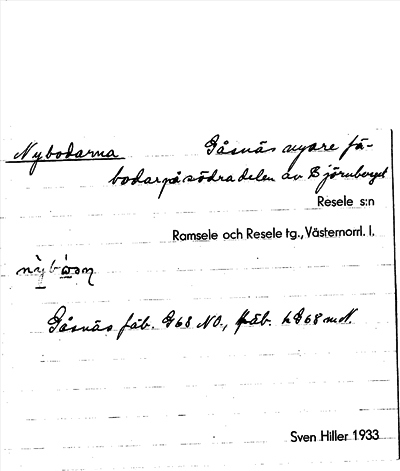 Nybodarna Gåsnäs nyare fä-
bodar på södra delen av Björnberget
Resele s:n
Ramsele och Resele tg., Västernorrl. l.
Gåsnäs fäb. G68 NO., fäb. h G68 m N.
Sven Hiller 1933